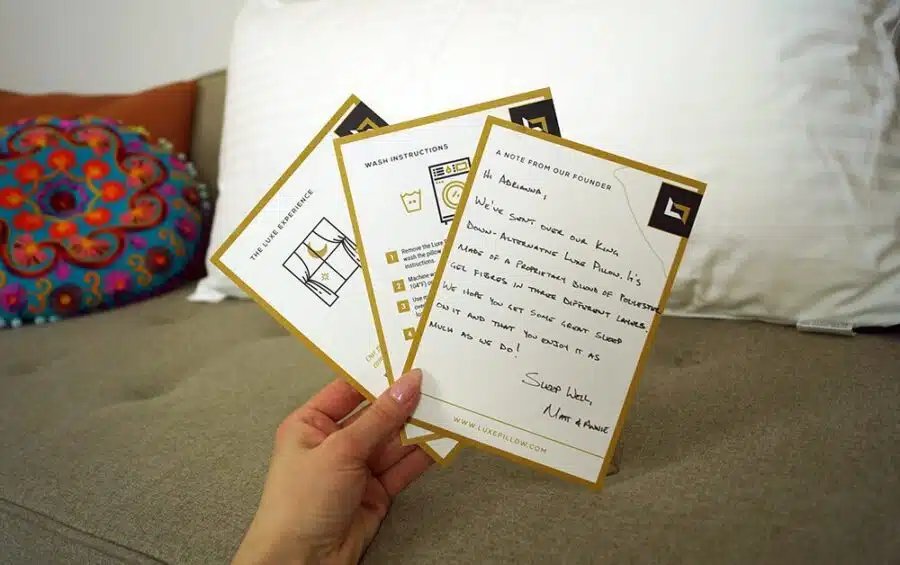 THE LUXE EXPERIENCE
WASH INSTRUCTIONS
1 Remove the Luxe
wash the pillow
instructions.
2 Machine
(104°F) or
3 Use
4
A NOTE FROM OUR FOUNDER
Hi Adrianna,
We've sent over our King
Down-Alternative Luxe Pillow. It's
made of a proprietary blend of polyester
gel fibres in three different layers.
We hope you get some great sleep
on it and that you enjoy it as
much as we do!
Sleep Well,
Matt & Annie
WWW.LUXEPILLOW.COM